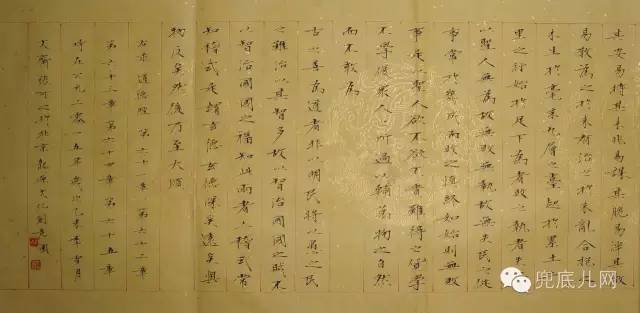 其安易持其未兆易謀其脆易泮其微
易散為之於未有治之於未亂合抱之
木生於毫末九層之臺起於累土
里之行始於足下為者敗之執者失
以聖人無為故無敗無執故無失民之從
事常於幾成而敗之慎終如始則無敗
事是以聖人欲不欲不貴難得之貨學
不學復衆人之所過以輔萬物之自然
而不敢為
古之善為道者非以明民將以愚之民
之難治以其智多故以智治國國之賊不
以智治國國之福知此兩者亦稽式常
知稽式是謂玄德玄德深矣遠矣與
物反矣然後乃至大順
右录 道德經 第六十一章 第六十二章
第六十三章 第六十四章 第六十五章
時在公元二零一五年歲次乙未年 月
於北京龍
兜底儿网